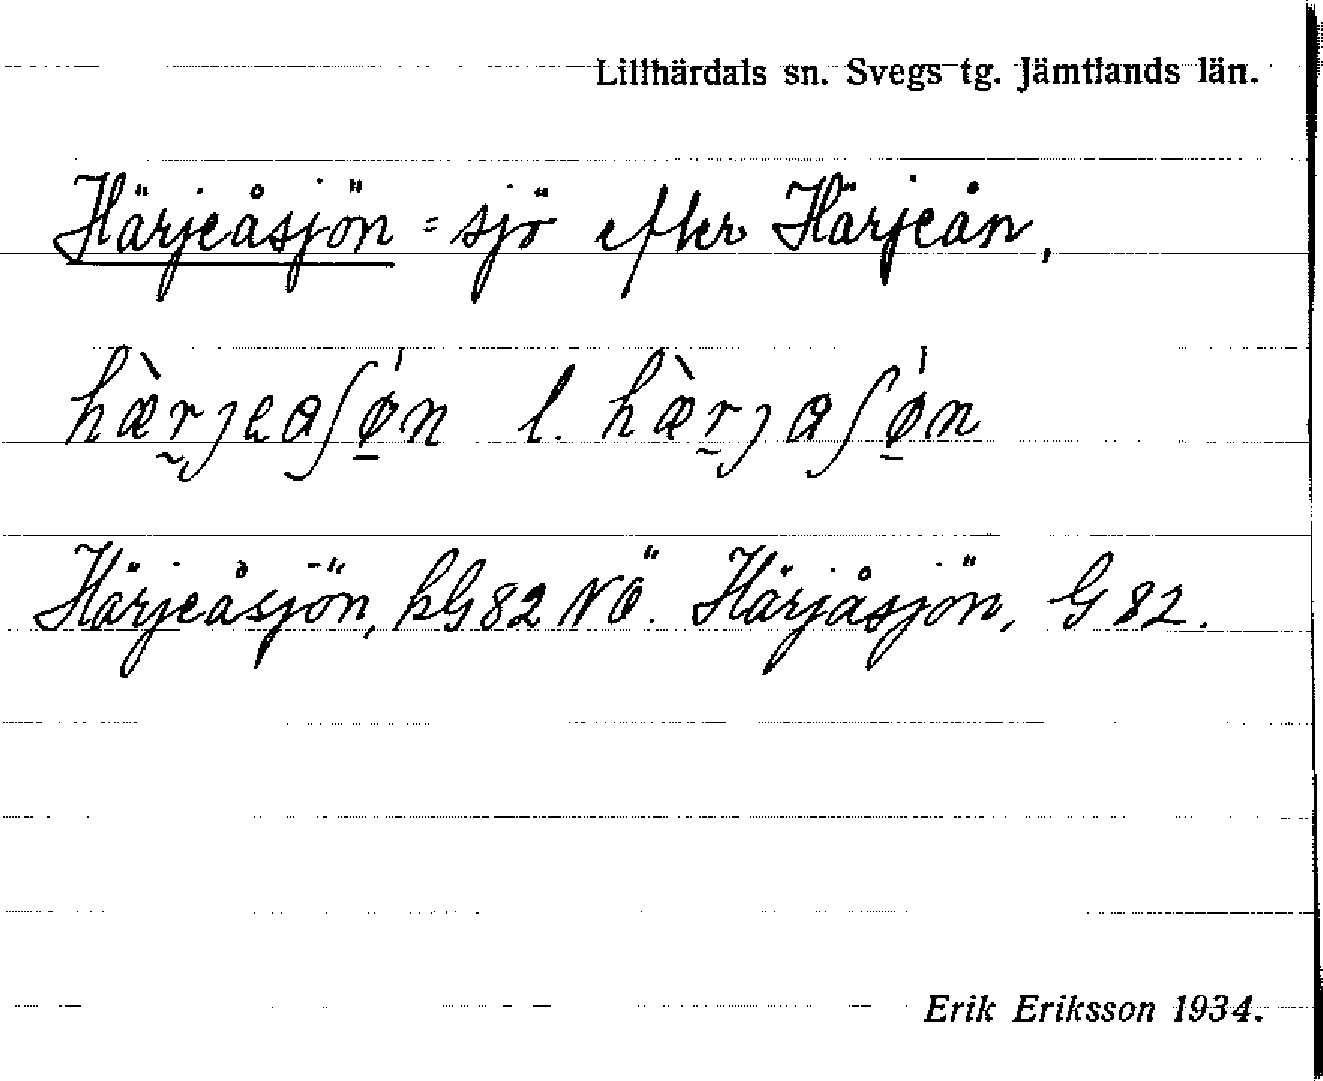 Lillhärdals sn. Svegs tg. Jämtlands län.
Härjeåsjön = sjö efter Härjeån,
hæ̀rjeaʃǿ̲n l. hæ̀rjaʃǿ̲n
Härjeåsjön, hG82 NÖ. Härjåsjön, G 82.
Erik Eriksson 1934.